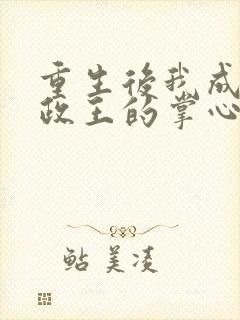 重生後我成
政王的掌心
鲇美凌